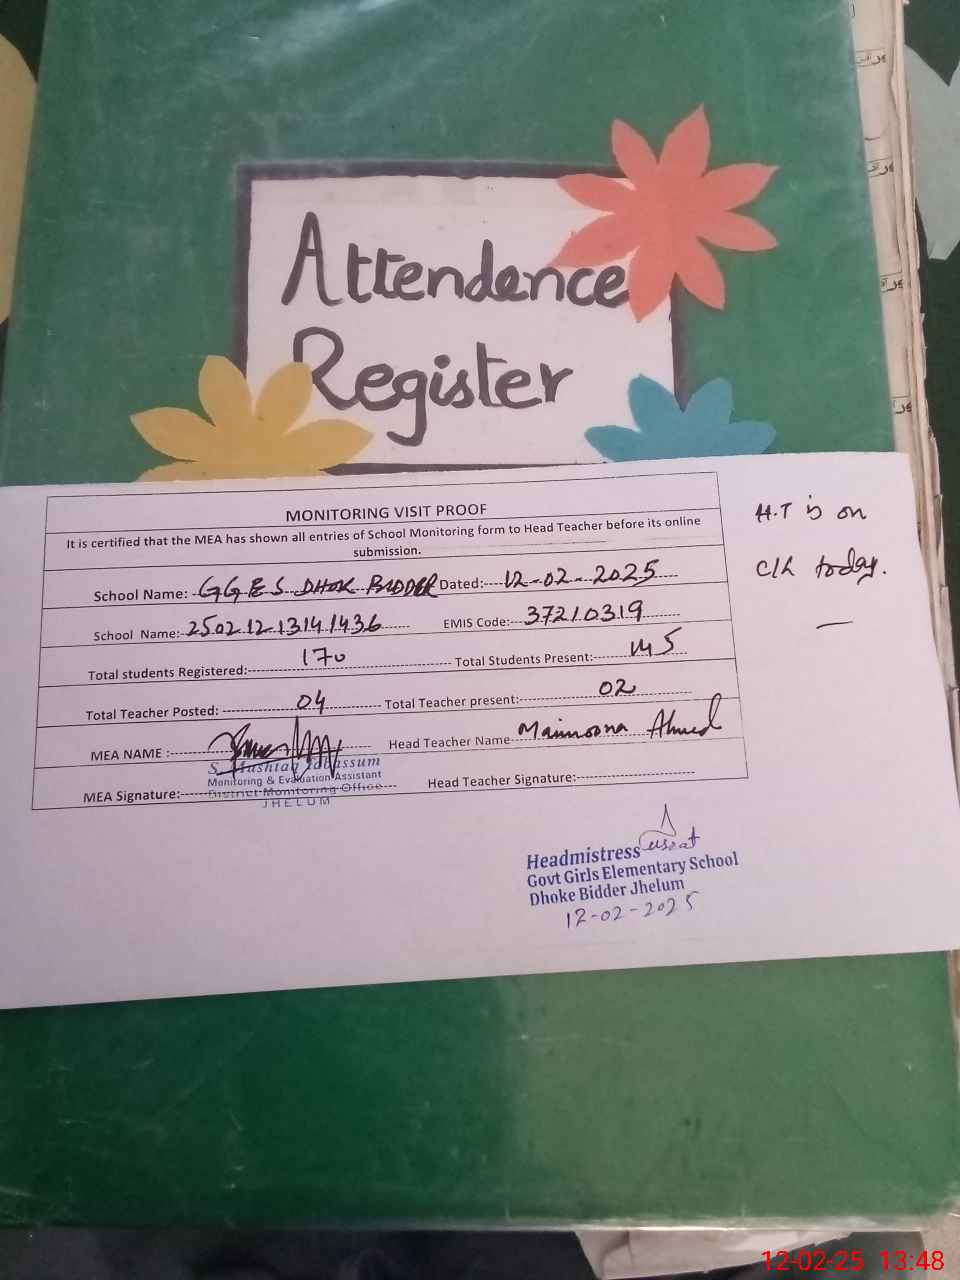 Attendence
Register
MONITORING VISIT PROOF
It is certified that the MEA has shown all entries of School Monitoring form to Head Teacher before its online
submission.
School Name: GGES DHOK BIDDER Dated: 12-02-2025
School Name: 25021213141436 EMIS Code: 37210319
Total students Registered: 170 Total Students Present: 145
Total Teacher Posted: 04 Total Teacher present: 02
MEA NAME : Head Teacher Name Maimoona Ahmed
S. Mushtaq Tabassum
Monitoring & Evaluation Assistant
MEA Signature: District Monitoring Office Head Teacher Signature:
JHELUM
H.T is on
C/L today.
Headmistress
Govt Girls Elementary School
Dhoke Bidder Jhelum
12-02-2025
12-02-25 13:48